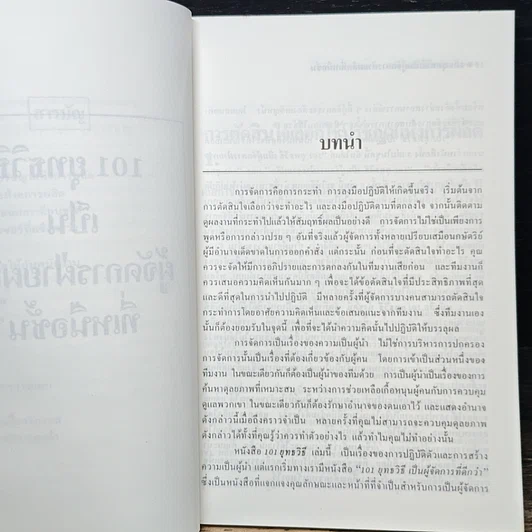 บทนำ
การจัดการคือการกระทำ การลงมือปฏิบัติให้เกิดขึ้นจริง เริ่มต้นจาก
การตัดสินใจเลือกว่าจะทำอะไร และลงมือปฏิบัติตามที่ตกลงใจ จากนั้นติดตาม
ดูผลงานที่กระทำไปแล้วให้สัมฤทธิ์ผลเป็นอย่างดี การจัดการไม่ใช่เป็นเพียงการ
พูดหรือการกล่าวเปรย ๆ อันที่จริงแล้วผู้จัดการทั้งหลายเปรียบเสมือนกษัตริย์
ผู้มีอำนาจเด็ดขาดในการออกคำสั่ง แต่กระนั้น ก่อนที่จะตัดสินใจทำอะไร คุณ
ควรจะจัดให้มีการอภิปรายและการตกลงกันในทีมงานเสียก่อน และทีมงานก็
ควรเสนอความคิดเห็นกันมาก ๆ เพื่อจะได้ข้อตัดสินใจที่มีประสิทธิภาพที่สุด
และดีที่สุดในการนำไปปฏิบัติ มีหลายครั้งที่ผู้จัดการบางคนสามารถตัดสินใจ
กระทำการโดยอาศัยความคิดเห็นและข้อเสนอแนะจากทีมงาน ซึ่งทีมงานเอง
นั้นก็ต้องยอมรับในจุดนี้ เพื่อที่จะได้นำความคิดนั้นไปปฏิบัติให้บรรลุผล
การจัดการเป็นเรื่องของความเป็นผู้นำ ไม่ใช่การบริหารการปกครอง
การจัดการนั้นเป็นเรื่องที่ต้องเกี่ยวข้องกับผู้คน โดยการเข้าเป็นส่วนหนึ่งของ
ทีมงาน ในขณะเดียวกันก็ต้องเป็นผู้นำของทีมด้วย การเป็นผู้นำเป็นเรื่องของการ
ค้นหาดุลยภาพที่เหมาะสม ระหว่างการช่วยเหลือเกื้อหนุนผู้คนกับการควบคุม
ดูแลพวกเขา ในขณะเดียวกันก็ต้องรักษาอำนาจของตนเอาไว้ และแสดงอำนาจ
ดังกล่าวนี้เมื่อถึงคราวจำเป็น หลายครั้งที่คุณไม่สามารถจะควบคุมดุลยภาพ
ดังกล่าวได้ทั้งที่คุณรู้ว่าควรทำตัวอย่างไร แล้วทำไมคุณไม่ทำอย่างนั้น
หนังสือ 101 ยุทธวิธี เล่มนี้ เป็นเรื่องของการปฏิบัติตัวและการสร้าง
ความเป็นผู้นำ แต่แรกเริ่มทางเรามีหนังสือ "101 ยุทธวิธี เป็นผู้จัดการที่ดีกว่า"
ซึ่งเป็นหนังสือที่แจกแจงคุณลักษณะและหน้าที่ที่จำเป็นสำหรับการเป็นผู้จัดการ